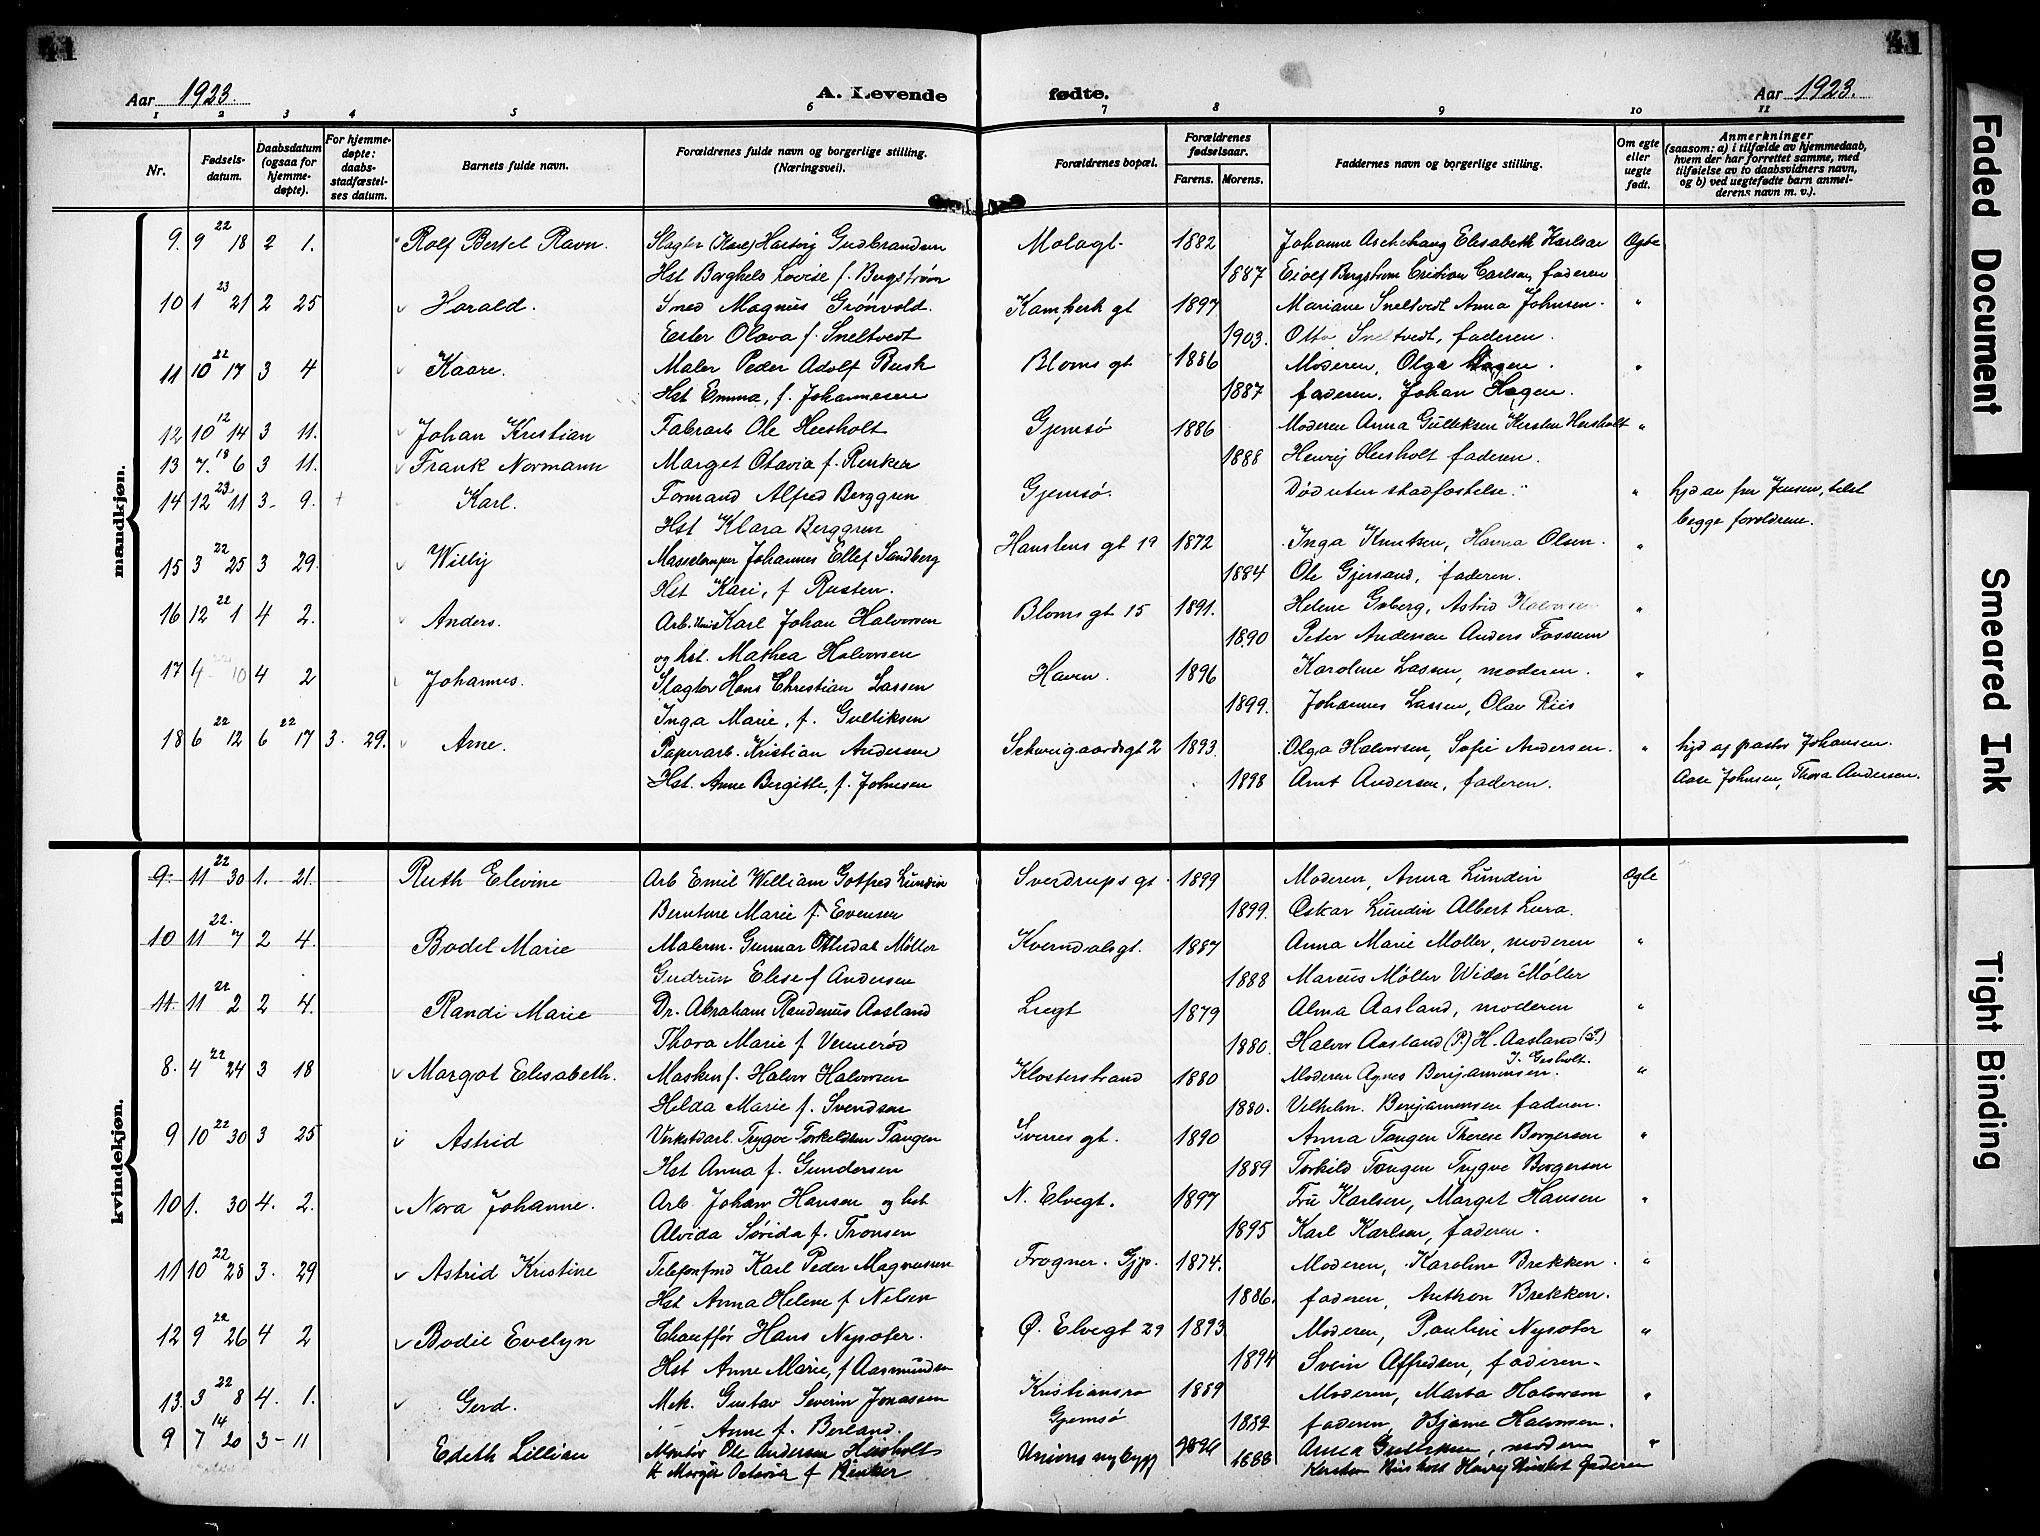 41
41
Aar 1923.
A. Levende
fødte.
Aar 1923.
1 2 3 4 5 6 7 8 9 10 11
Nr.
Fødsels-
datum.
Daabsdatum
(ogsaa for
hjemme-
døpte).
For hjemme-
døpte:
daabs-
stadfæstel-
ses datum.
Barnets fulde navn.
Forældrenes fulde navn og borgerlige stilling.
(Næringsvei).
Forældrenes bopæl.
Forældrenes
fødselsaar.
Farens. Morens.
Faddernes navn og borgerlige stilling.
Om egte
eller
uegte
født.
Anmerkninger
(saasom: a) i tilfælde av hjemmedaab,
hvem der har forrettet samme, med
tilføielse av to daabsvidners navn,
og b) ved uegtefødte barn anmel-
derens navn m. v.).
mandkjøn.
9. 9 22 18 2 1. Rolf Bertel Ravn. Slagter (Kare) Hartvig Gudbrandsen Molagt. 1882 Johanne Aschehaug Elisabeth Karlsen Egte
Hst Borghild Lovise f. Bergstrøm 1887 Eiolf Bergstrøm Cristian Carlsen, faderen
10 1 23 21 2 25 Harald. Smed Magnus Grønvold. Kamperh gt 1897 Mariane Sneltvedt Anna Johnsen. "
Ester Olava f. Sneltvedt 1903. Otto Sneltvedt, faderen.
11 10 22 17 3 4 Kaare. Maler Peder Adolf Busk Bloms gt 1886 Moderen, Olga Hagen. "
Hst Emma, f. Johannesen 1887 faderen, Johan Hagen.
12 10 12 14 3 11. Johan Kristian Fabrarb Ole Heisholt Gjemsø 1886 Moderen Anna Gulliksen Kirsten Heisholt "
13 7. 18 6 3 11. Frank Normann Marget Otavia f. Renker 1888 Henry Heisholt faderen.
14 12 23 11 3 9. + Karl. Formand Alfred Berggren Gjemsø. Død uten stadfæstelse. " hjd av fru Jensen, tilst
Hst Klara Berggren begge forældrene.
15 3 22 25 3 29. Willy Johannes Ellef Sandberg Hansteens gt 19 1872 Inga Knutsen, Hanna Olsen. "
Hst Kari, f Rusten. 1884 Ole Gjersand, faderen.
16 12 22 1 4 2. Anders. Arb. Karl Johan Halvorsen Bloms gt 15 1891. Helene Goberg, Astrid Halvorsen "
og hst. Mathea Halvorsen 1890 Peter Andersen Anders Fossum
17 4 22 10 4 2 Johannes. Slagter Hans Christian Lassen Haven. 1896 Karoline Lassen, moderen. "
Inga Marie, f. Gulliksen 1899. Johannes Lassen, Olav Riis
18 6 22 12 6 22 17 3. 29. Arne. Papirarb. Kristian Andersen Schweigaardsgt 2 1893 Olga Halvorsen, Sofie Andersen. " hjd af pastor Johansen.
Hst. Anne Bergitte, f. Johnsen 1898 Arnt Andersen, faderen. Aase Johnsen, Thora Andersen.
kvindekjøn.
9. 11 22 30 1. 21. Ruth Elevine Arb Emil William Gotfred Lundin Sverdrups gt. 1899 Moderen, Anna Lundin Egte
Berntine Marie f. Evensen 1899. Oskar Lundin Albert Lura.
10 11 22. 7 2 4. Bodil Marie Malerm. Gunnar Otterdal Møller Kverndalsgt. 1887 Anna Marie Møller, moderen "
Gudrun Elise f Andersen 1888 Marcus Møller Widar Møller
11 11 22 2 2 4. Randi Marie Dr. Abraham Randenus Aasland Liegt 1879 Alma Aasland, moderen "
Thora Marie f Vennerød 1880. Halvor Aasland (P.) H. Aasland (S)
J. Gisholt.
8. 4 22 24 3 18 Margot Elisabeth. Maskinf. Halvor Halvorsen Klosterstrand 1880 Moderen Agnes Benjaminsen. "
Helda Marie f. Svendsen 1880. Vilhelm. Benjaminsen faderen.
9 10 22 30 3 25 Astrid Verkstdarb. Trygve Torkildsen Tangen Sverres gt. 1890 Anna Tangen Therese Borgersen "
Hst Anna f. Gundersen 1889 Torkild Tangen Trygve Borgersen
10 1. 30 4. 2. Nora Johanne. Arb Johan Hansen og hst N. Elvegt. 1897 Fru Karlsen, Margit Hansen "
Alvida Sørida f. Tronsen 1895 Karl Karlsen, faderen.
11 10 22 28 3. 29 Astrid Kristine Telefonfmd Karl Peder Magnussen Frogner. Gjp. 1874. Moderen, Karoline Brekken. "
Hst Anna Helene f Nelsen 1886. faderen, Anthon Brekken.
12 9 22 26 4 2 Bodil Evelyn Chauffør Hans Nysæter. Ø. Elvegt 29 1893 Moderen, Pauline Nysæter "
Hst Anne Marie, f Aasmundsen 1894 Svein Alfredsen, faderen.
13. 3 22 8 4. 1. Gerd. Mek. Gustav Severin Jonassen Kristiansro 1889 Moderen, Marta Halvorsen "
Anne f. Berland. Gjemsø 1882 faderen, Bjarne Halvorsen.
9 7 14 20 3 - 11 Edith Lillian Montør Ole Andersen Heisholt Unions nybygg 1886 1888 Anna Gulliksen, modern "
h Marget Octavia f Renker Kirsten Heisholt Henry Heisholt faderen
Faded Document
Smeared Ink
Tight Binding